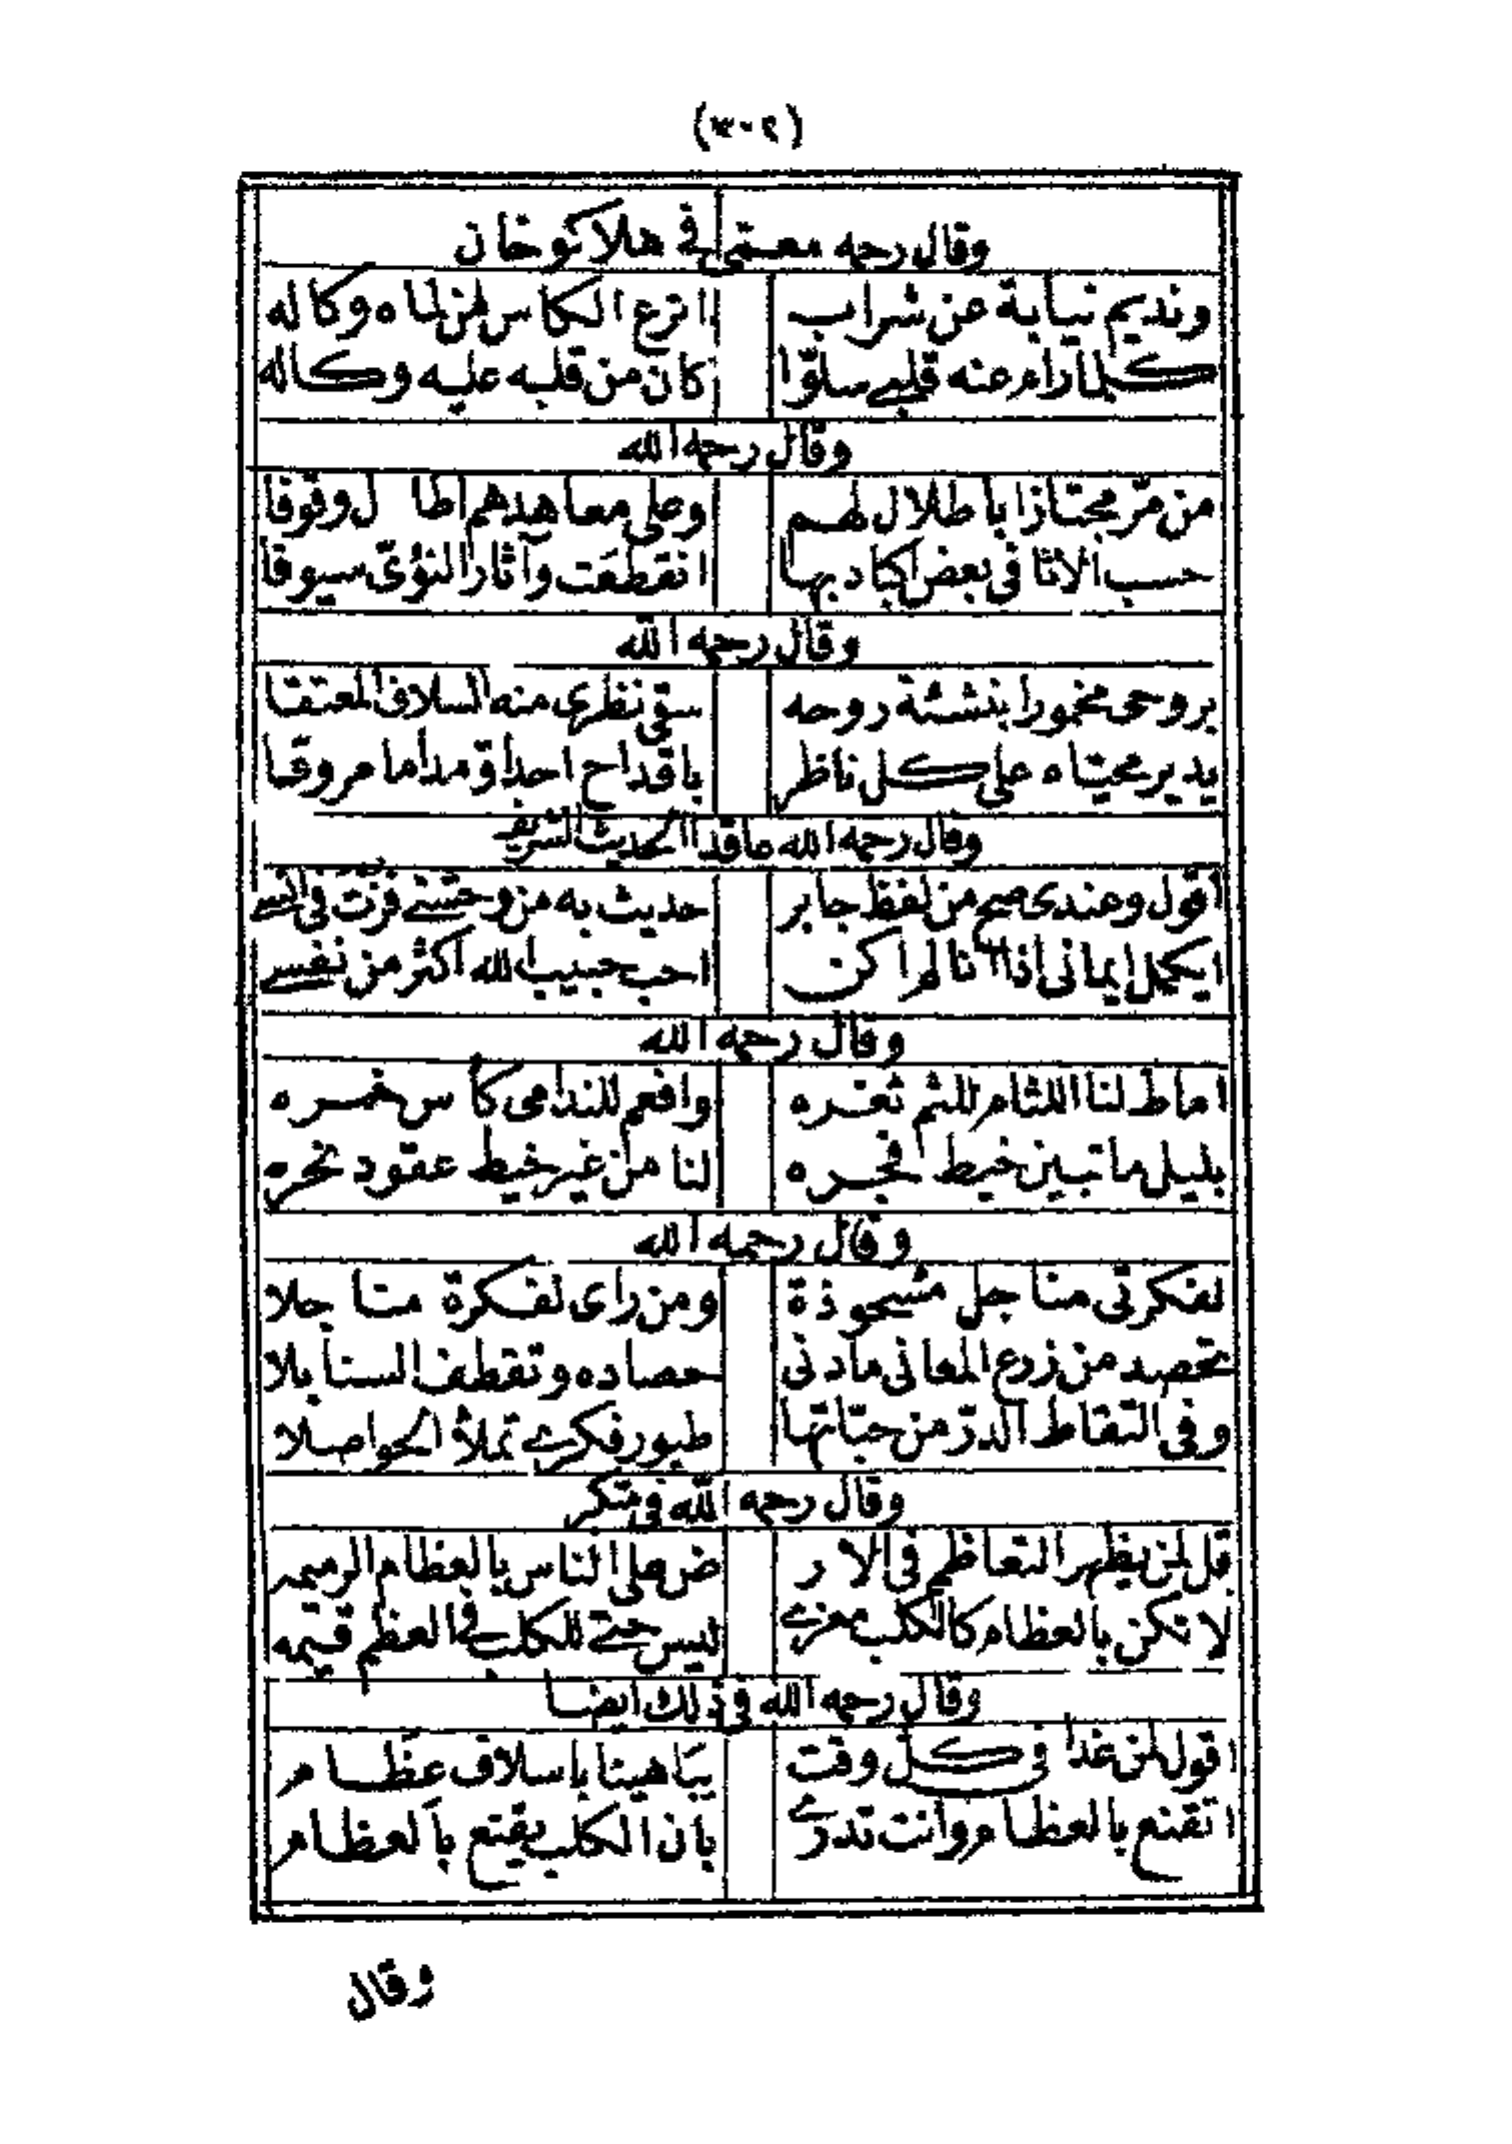 (٣٠٢)
وقال رحمه معمى في هلاكو خان
ونديم نيابة عن شراب اترع الكاس من لماه وكاله
كلما رام عنه قلبي سلوّا كان من قلبه عليه وكاله
وقال رحمه الله
من مرّ مجتازا باطلال لهم وعلى معاهدهم اطال وقوفا
حسب الاثافى بعض اكباد بها انقطعت وآثار النؤىّ سيوفا
وقال رحمه الله
بروحى مخمورا بنشئة روحه سقى نظرى منه السلاف المعتقا
يدير محيّاه على كل ناظر باقداح احداق مداما مروقا
وقال رحمه الله عاقدا الحديث الشريف
اقول وعندى صح من لفظ جابر حديث به من وحشتى فزت فى انسے
ايكمل ايمانى اذا انا لم اكن احب حبيب الله اكثر من نفسے
وقال رحمه الله
اماط لنا اللثام للثم ثغره وافعم للندامى كاس خمره
بليل ما تبين خيط فجره لنا من غير خيط عقود نحره
وقال رحمه الله
لفكرتى مناجل مشحوذة ومن راى لفكرة مناجلا
تحصد من زرع المعانى مادنى حصاده وتقطف السنابلا
وفى التقاط الدرّ من حبّاتها طيور فكرے تملأ الحواصلا
وقال رحمه الله فى متكبر
قل لمن يظهر التعاظم فى الار ض على الناس بالعظام الرميمه
لا تكن بالعظام كالكلب مغرے ليس حتے للكلب فى العظم قيمه
وقال رحمه الله فى ذلك ايضا
اقول لمن غدا فى كل وقت يباهينا باسلاف عظام
اتقنع بالعظام وانت تدرے بان الكلب يقنع بالعظام
وقال